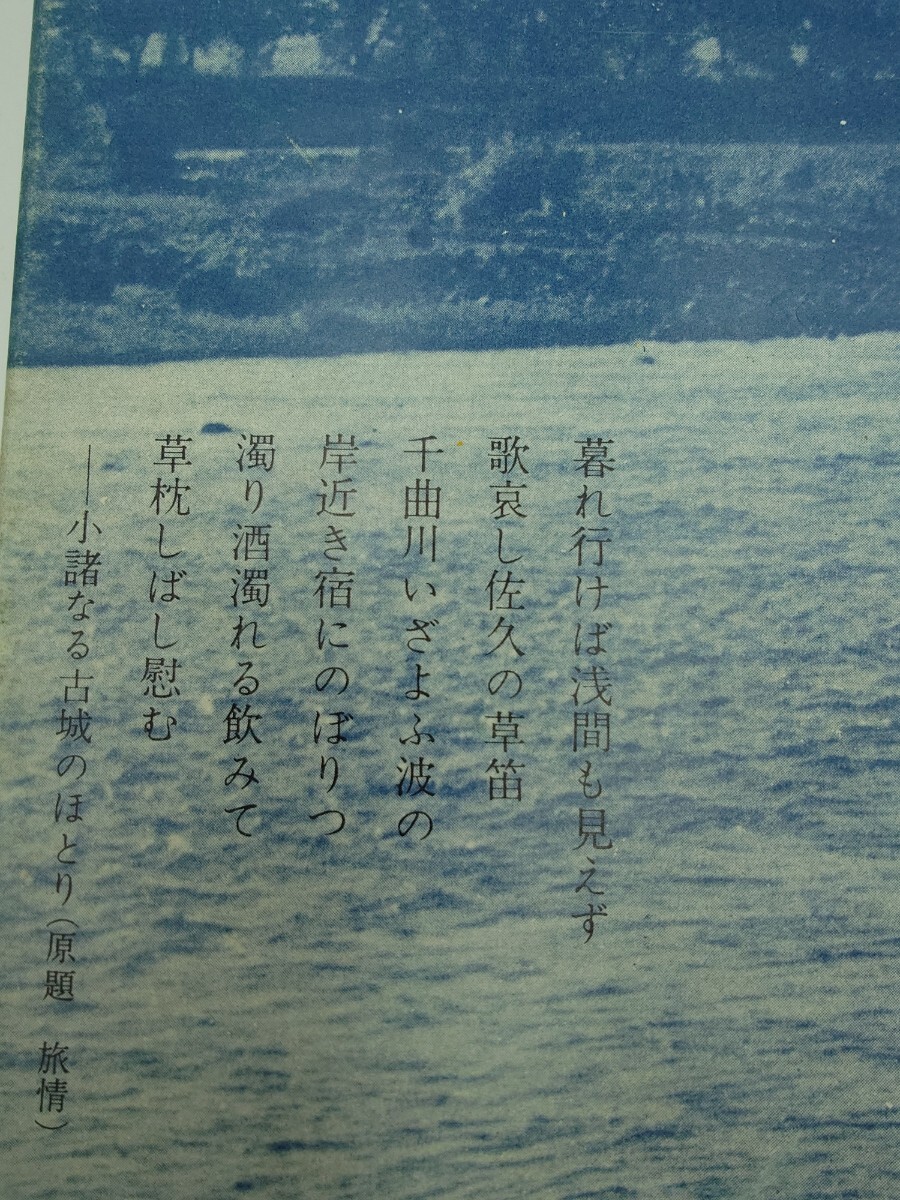 暮れ行けば浅間も見えず
歌哀し佐久の草笛
千曲川いざよふ波の
岸近き宿にのぼりつ
濁り酒濁れる飲みて
草枕しばし慰む
——小諸なる古城のほとり(原題 旅情)